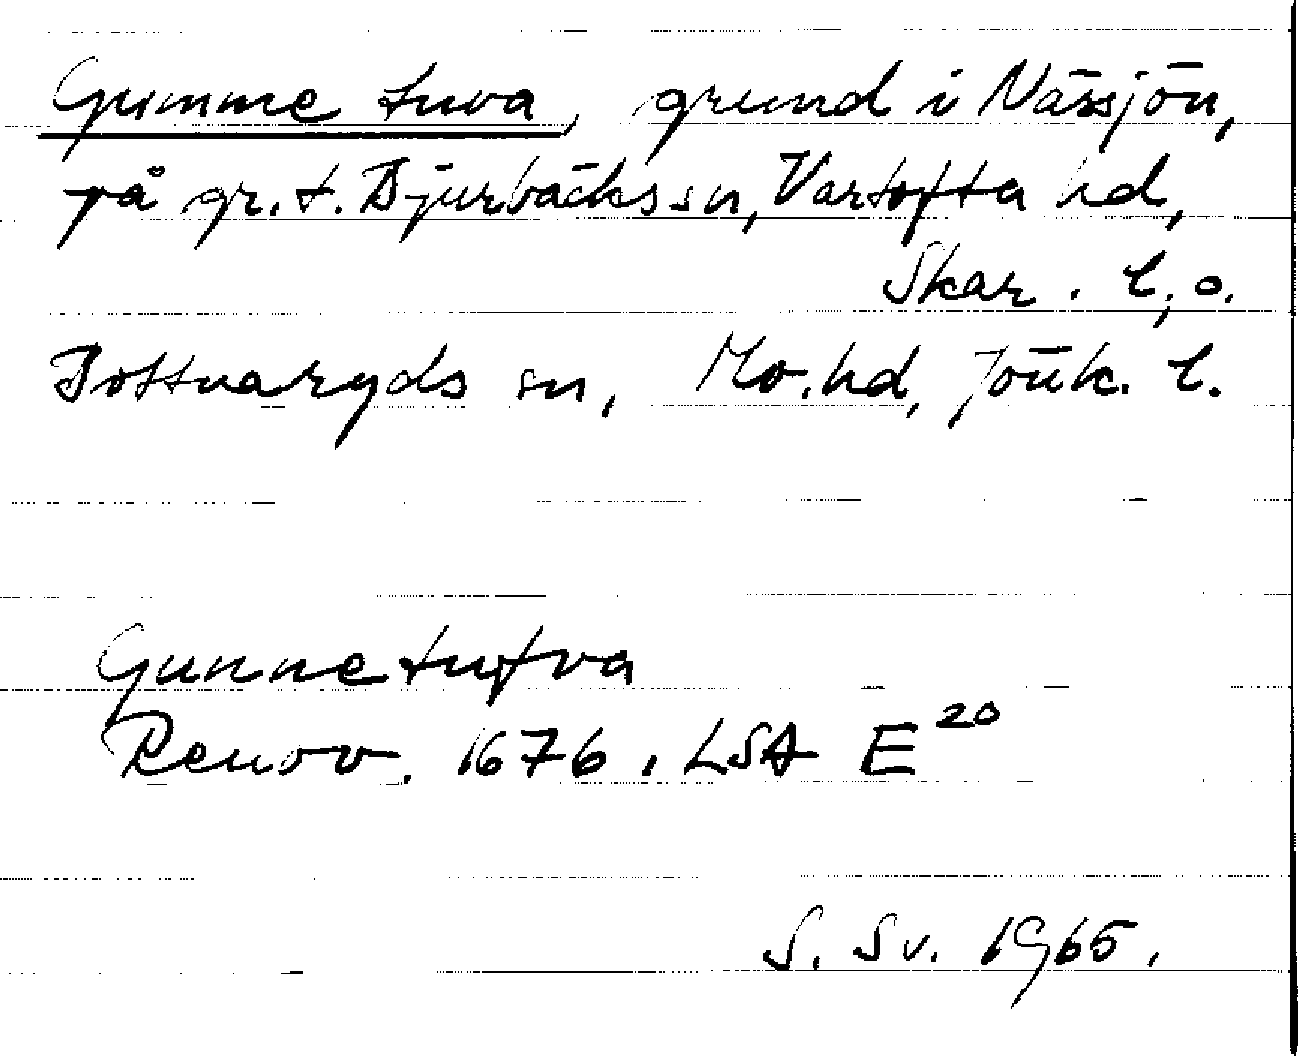 Gumme tuva, grund i Nässjön,
på gr. t. Bjurbäcks sn, Vartofta hd,
Skar. l, o.
Bottnaryds sn, Mo. hd, Jönk. l.
Gunne tufva
Renov. 1676, LSA E 20
S. Sv. 1965.